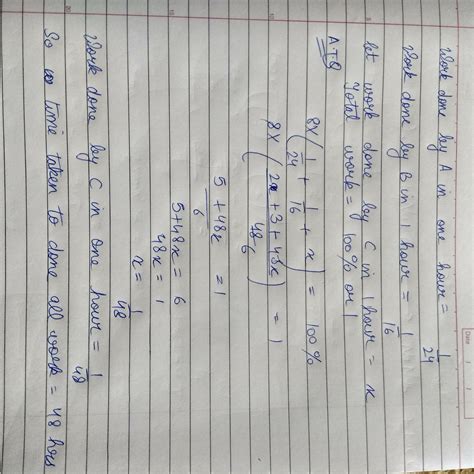 Date
Work done by A in one hour = 1/24
Work done by B in 1 hour = 1/16
let work done by C in 1 hour = x
Total work = 100% or 1
A.T.Q
8x(1/24 + 1/16 + x) = 100%
8x(2x + 3 + 48x / 48 6) = 1
5 + 48x / 6 = 1
5+48x = 6
48x = 1
x = 1/48
Work done by C in one hour = 1/48
So time taken to done all work = 48 hrs